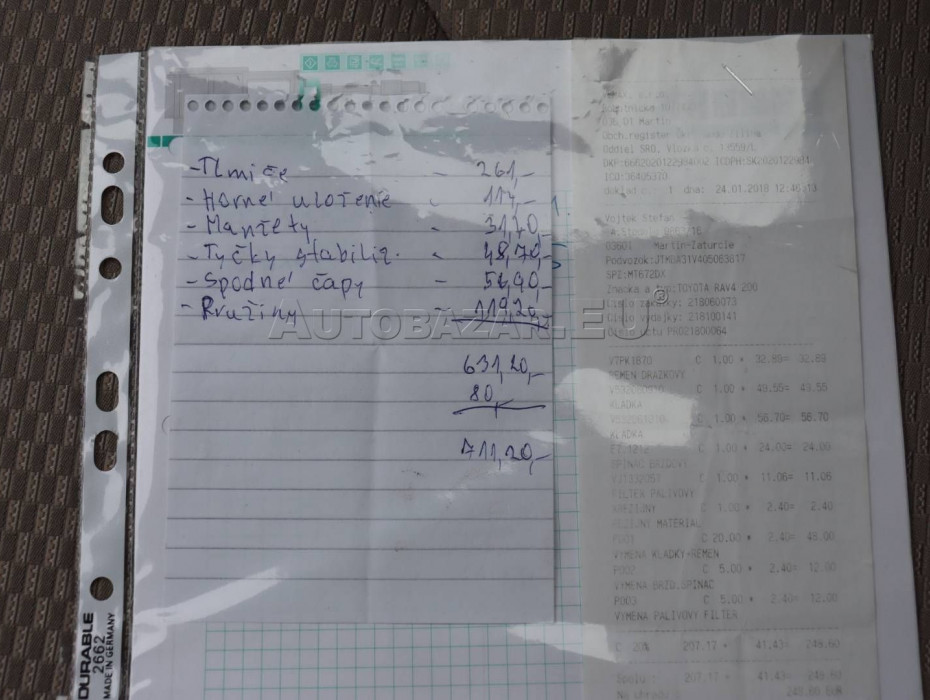 -Tlmiče - 261,-
- Horné uloženie - 114,-
- Manžety - 31,20,-
- Tyčky stabiliz. - 48,70,-
- Spodné čapy - 56,90,-
- Pružiny - 119,20,-
631,20,-
80,-
711,20,-
AUTOBAZAR.EU®
036 01 Martin
Obch.register
Oddiel SRO, Vložka č.
doklad č. 1 dňa: 24.01.2018 12:46:13
Vojtek Stefan
03601 Martin-Zaturcie
Podvozok:
SPZ:MT672DX
Znacka a typ:TOYOTA RAV4 200
Cislo zakazky: 218060073
Cislo vydajky: 218100141
Cislo uctu PR021800064
C 1.00 * 32.89= 32.89
REMEN DRAZKOVY
C 1.00 * 49.55= 49.55
KLADKA
C 1.00 * 56.70= 56.70
KLADKA
C 1.00 * 24.00= 24.00
SPINAC BRZDOVY
C 1.00 * 11.06= 11.06
FILTER PALIVOVY
C 1.00 * 2.40= 2.40
MATERIAL
C 20.00 * 2.40= 48.00
VYMENA KLADKY+REMEN
P002 C 5.00 * 2.40= 12.00
VYMENA BRZD.SPINAC
P003 C 5.00 * 2.40= 12.00
VYMENA PALIVOVY FILTER
C 20% 207.17 + 41.43= 248.60
Spolu: 207.17 + 41.43= 248.60
248.60 EUR
DURABLE
2662
MADE IN GERMANY